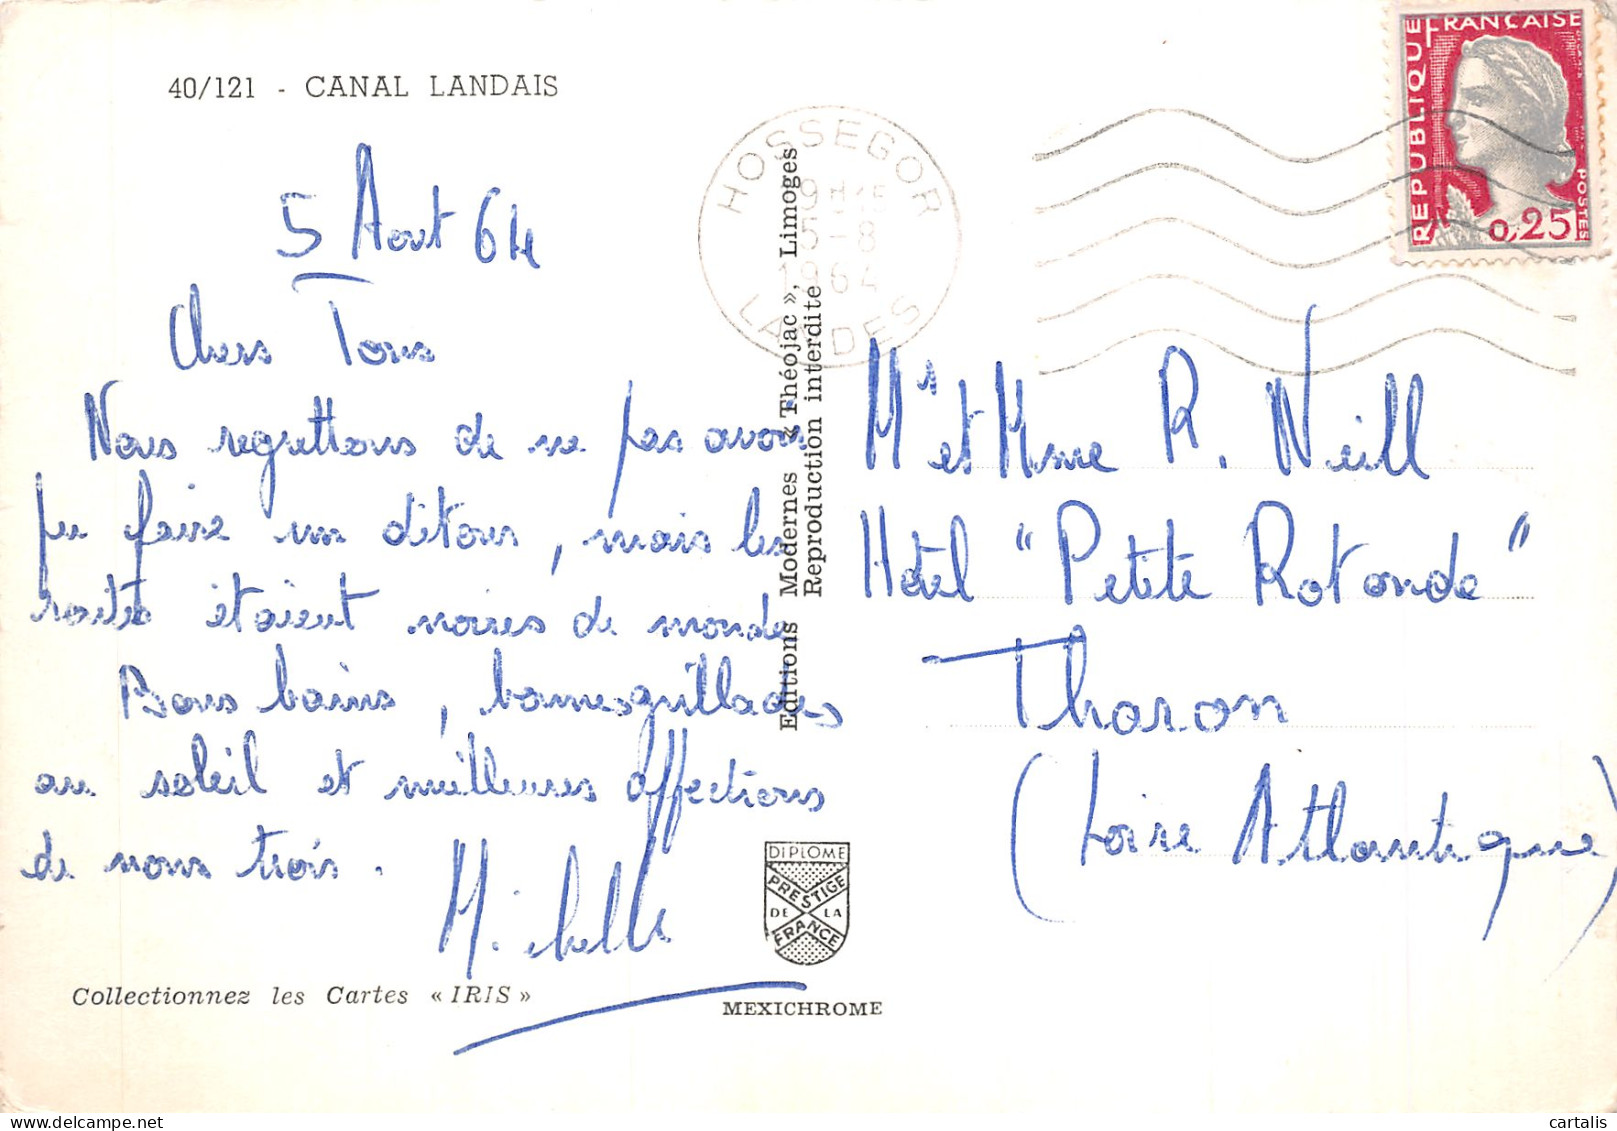 40/121 - CANAL LANDAIS
5 Aout 64
Chers Tous
Nous regrettons de ne pas avoir
pu faire un détour, mais les
routes étaient noires de monde
Bons bains, bonnes grillades
au soleil et meilleures affections
de nous trois.
Michelle
Collectionnez les Cartes « IRIS »
HOSSEGOR
5-8
1964
LANDES
Editions Modernes « Théojac », Limoges
Reproduction interdite
DIPLOME
PRESTIGE
DE LA
FRANCE
MEXICHROME
REPUBLIQUE FRANÇAISE
POSTES
0,25
Mr et Mme R. Neill
Hotel "Petite Rotonde"
Tharon
(Loire Atlantique)
cartalis